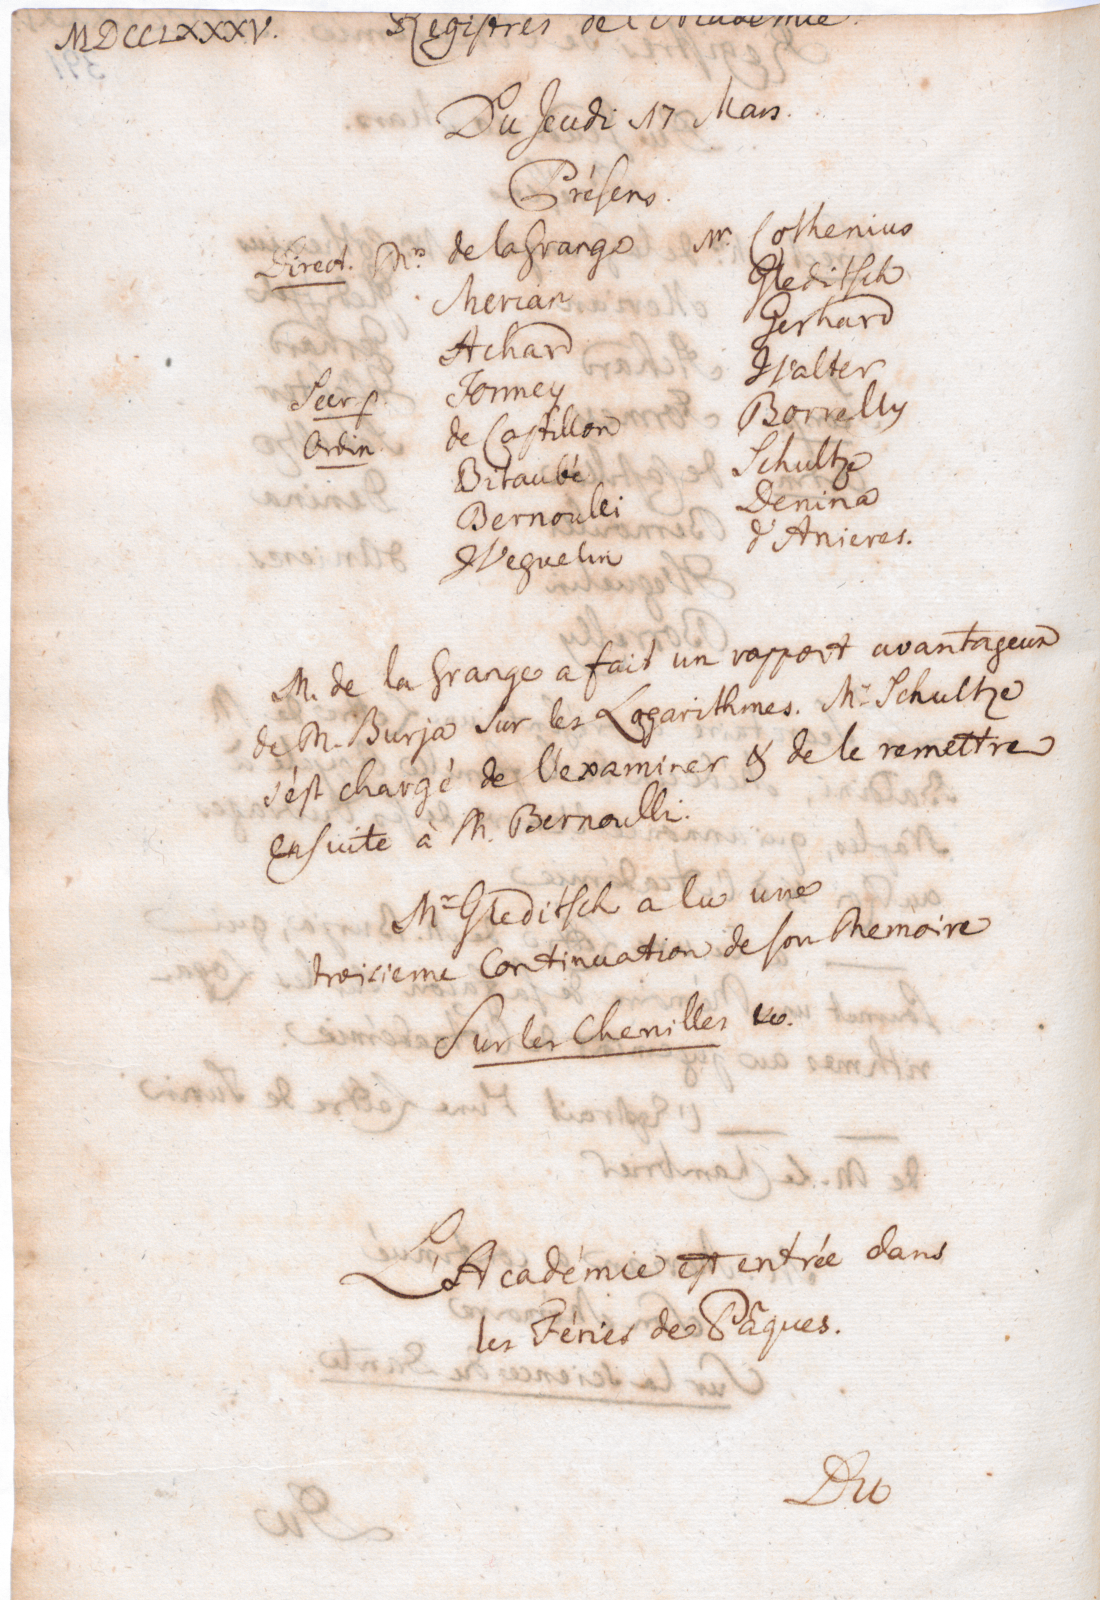 MDCCLXXXV. Registres de l'Academie.
Du Jeudi 17 Mars.
Présens.
Direct. Mrs de la Grange Mr. Cothenius
Merian Gleditsch
Achard Gerhard
Secr. p. Formey Walter
Ordin. de Castillon Borrelly
Bitaubé Schultze
Bernoulli Denina
Weguelin d'Anieres.
M. de la Grange a fait un rapport avantageux
de M. Burja sur les Logarithmes. Mr Schultze
s'est chargé de l'examiner & de le remettre
ensuite à M. Bernoulli.
Mr Gleditsch a lu une
troisieme Continuation de son Memoire
Sur les Chenilles &c.
L'Académie est entrée dans
les Féries de Pâques.
Du